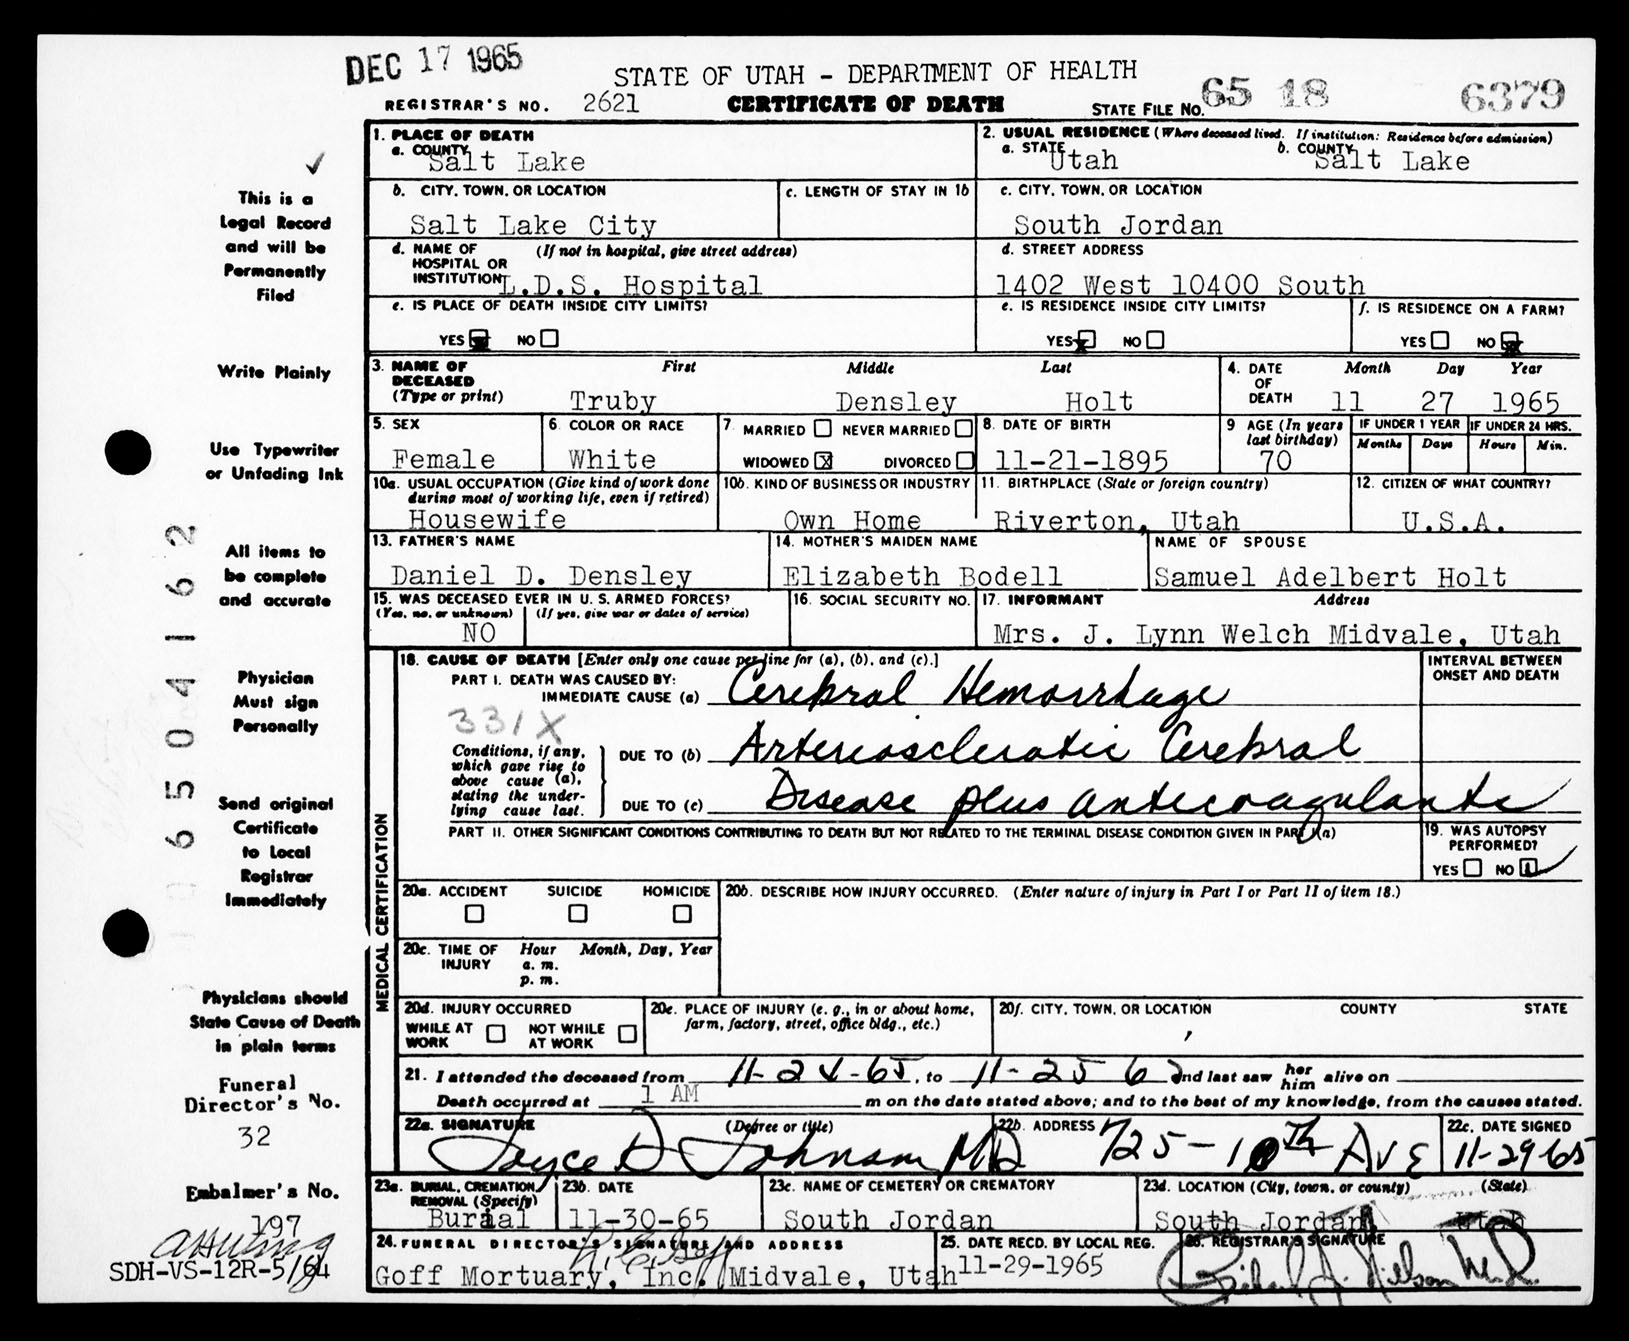 DEC 17 1965
STATE OF UTAH - DEPARTMENT OF HEALTH
REGISTRAR'S NO. 2621 CERTIFICATE OF DEATH STATE FILE NO. 65 18 6379
1. PLACE OF DEATH
a. COUNTY Salt Lake
2. USUAL RESIDENCE (Where deceased lived. If institution: Residence before admission)
a. STATE Utah b. COUNTY Salt Lake
b. CITY, TOWN, OR LOCATION Salt Lake City
c. LENGTH OF STAY IN 1b
c. CITY, TOWN, OR LOCATION South Jordan
d. NAME OF HOSPITAL OR INSTITUTION (If not in hospital, give street address) L.D.S. Hospital
d. STREET ADDRESS 1402 West 10400 South
e. IS PLACE OF DEATH INSIDE CITY LIMITS?
YES x NO
e. IS RESIDENCE INSIDE CITY LIMITS?
YES x NO
f. IS RESIDENCE ON A FARM?
YES NO x
3. NAME OF DECEASED (Type or print)
First Middle Last
Truby Densley Holt
4. DATE OF DEATH Month Day Year
11 27 1965
5. SEX Female
6. COLOR OR RACE White
7. MARRIED NEVER MARRIED
WIDOWED X DIVORCED
8. DATE OF BIRTH 11-21-1895
9 AGE (In years last birthday) 70
IF UNDER 1 YEAR Months Days
IF UNDER 24 HRS. Hours Min.
10a. USUAL OCCUPATION (Give kind of work done during most of working life, even if retired)
Housewife
10b. KIND OF BUSINESS OR INDUSTRY
Own Home
11. BIRTHPLACE (State or foreign country)
Riverton, Utah
12. CITIZEN OF WHAT COUNTRY?
U.S.A.
13. FATHER'S NAME
Daniel D. Densley
14. MOTHER'S MAIDEN NAME
Elizabeth Bodell
NAME OF SPOUSE
Samuel Adelbert Holt
15. WAS DECEASED EVER IN U.S. ARMED FORCES?
(Yes, no, or unknown) (If yes, give war or dates of service)
NO
16. SOCIAL SECURITY NO.
17. INFORMANT Address
Mrs. J. Lynn Welch Midvale, Utah
MEDICAL CERTIFICATION
18. CAUSE OF DEATH [Enter only one cause per line for (a), (b), and (c).]
PART I. DEATH WAS CAUSED BY:
IMMEDIATE CAUSE (a) Cerebral Hemorrhage
331X
Conditions, if any, which gave rise to above cause (a), stating the underlying cause last.
DUE TO (b) Arteriosclerotic Cerebral
DUE TO (c) Disease plus anticoagulants
INTERVAL BETWEEN ONSET AND DEATH
PART II. OTHER SIGNIFICANT CONDITIONS CONTRIBUTING TO DEATH BUT NOT RELATED TO THE TERMINAL DISEASE CONDITION GIVEN IN PART I(a)
19. WAS AUTOPSY PERFORMED?
YES NO
20a. ACCIDENT SUICIDE HOMICIDE
20b. DESCRIBE HOW INJURY OCCURRED. (Enter nature of injury in Part I or Part II of item 18.)
20c. TIME OF INJURY Hour Month, Day, Year
a. m.
p. m.
20d. INJURY OCCURRED
WHILE AT WORK NOT WHILE AT WORK
20e. PLACE OF INJURY (e. g., in or about home, farm, factory, street, office bldg., etc.)
20f. CITY, TOWN, OR LOCATION COUNTY STATE
21. I attended the deceased from 11-24-65, to 11-25 6 and last saw her him alive on
Death occurred at 1 AM m on the date stated above; and to the best of my knowledge, from the causes stated.
22a. SIGNATURE (Degree or title)
Joyce D Johnson MD
22b. ADDRESS 725-10th AVE
22c. DATE SIGNED
11-29-65
23a. BURIAL, CREMATION, REMOVAL (Specify)
Burial
23b. DATE
11-30-65
23c. NAME OF CEMETERY OR CREMATORY
South Jordan
23d. LOCATION (City, town, or county) (State)
South Jordan Utah
24. FUNERAL DIRECTOR'S SIGNATURE AND ADDRESS
Goff Mortuary, Inc. Midvale, Utah
25. DATE RECD. BY LOCAL REG.
11-29-1965
26. REGISTRAR'S SIGNATURE
This is a
Legal Record
and will be
Permanently
Filed
Write Plainly
Use Typewriter
or Unfading Ink
All items to
be complete
and accurate
Physician
Must sign
Personally
Send original
Certificate
to Local
Registrar
Immediately
Physicians should
State Cause of Death
in plain terms
Funeral
Director's No.
32
Embalmer's No.
197
SDH-VS-12R-5/64
106504162